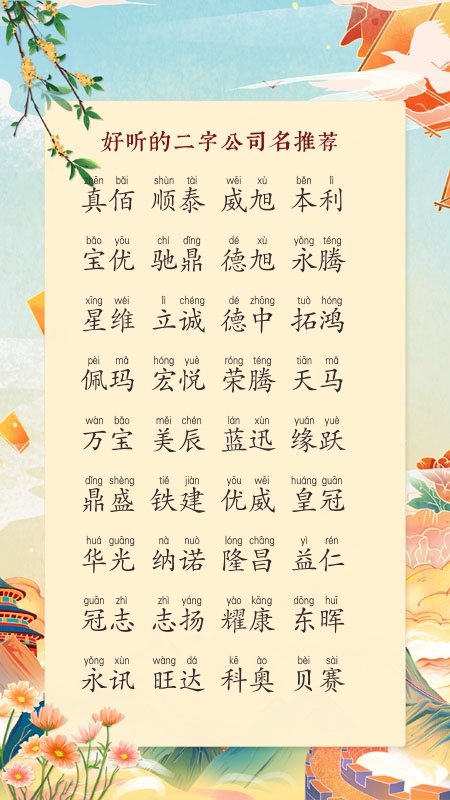 好听的二字公司名推荐
zhēn bǎi shùn tài wēi xù běn lì
真佰 顺泰 威旭 本利
bǎo yōu chí dǐng dé xù yǒng téng
宝优 驰鼎 德旭 永腾
xīng wéi lì chéng dé zhōng tuò hóng
星维 立诚 德中 拓鸿
pèi mǎ hóng yuè róng téng tiān mǎ
佩玛 宏悦 荣腾 天马
wàn bǎo měi chén lán xùn yuán yuè
万宝 美辰 蓝迅 缘跃
dǐng shèng tiě jiàn yōu wēi huáng guān
鼎盛 铁建 优威 皇冠
huá guāng nà nuò lóng chāng yì rén
华光 纳诺 隆昌 益仁
guān zhì zhì yáng yào kāng dōng huī
冠志 志扬 耀康 东晖
yǒng xùn wàng dá kē ào bèi sài
永讯 旺达 科奥 贝赛